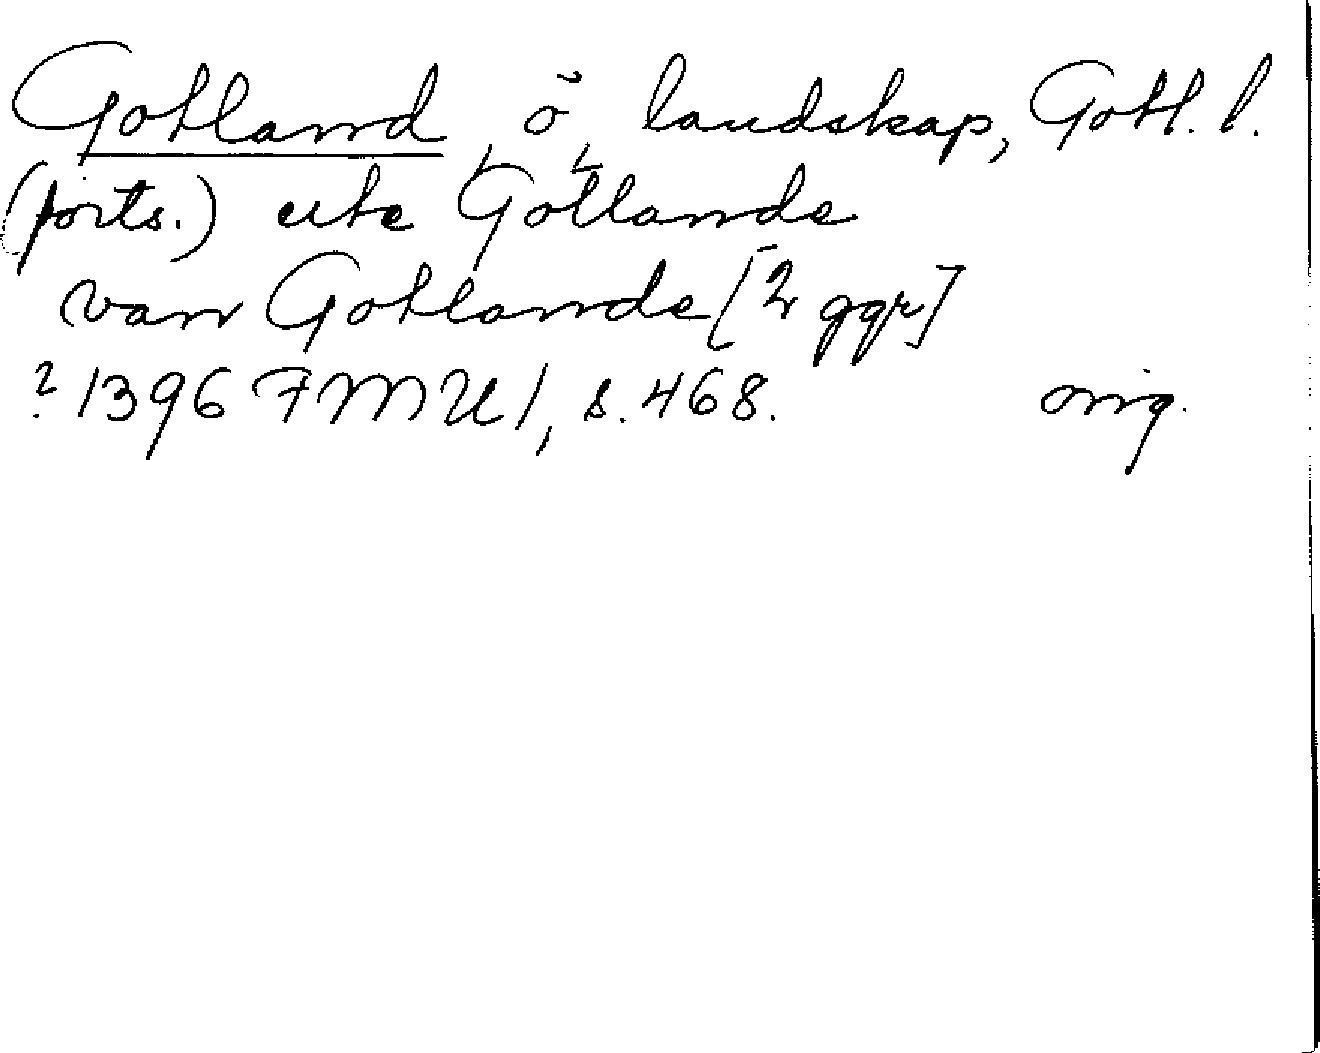 Gotland, ö, landskap, Gotl. l.
(forts.) ute Gotlande
van Gotlande [2 ggr]
? 1396 FMU 1, s. 468. orig.